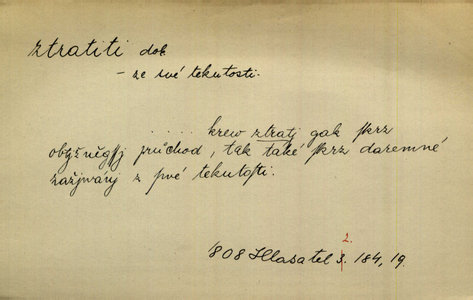 ztratiti dok
– ze své tekutosti.
..... krew ztratj gak skrz
obyžněgssj průchod, tak také skrz daremné
zažjwánj z své tekutosti.
2.
'808 Hlasatel 3. 184, 19.